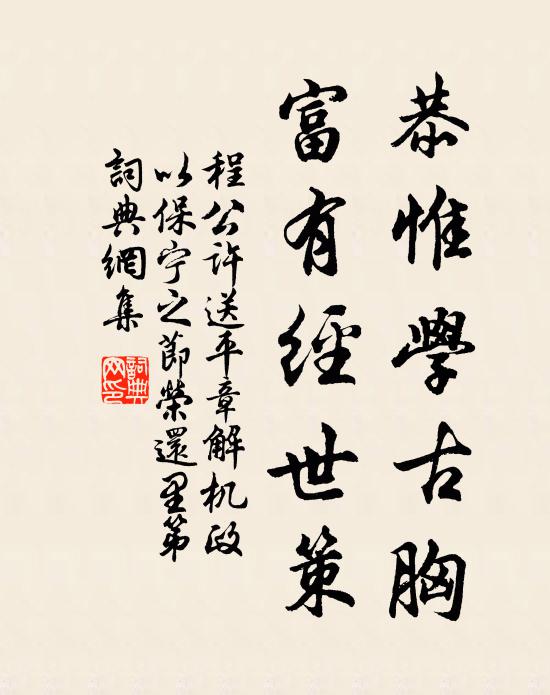 恭惟學古胸
富有經世策
程公許送平章解机政
以保宁之節榮還里第
詞典網集
詞典
网印